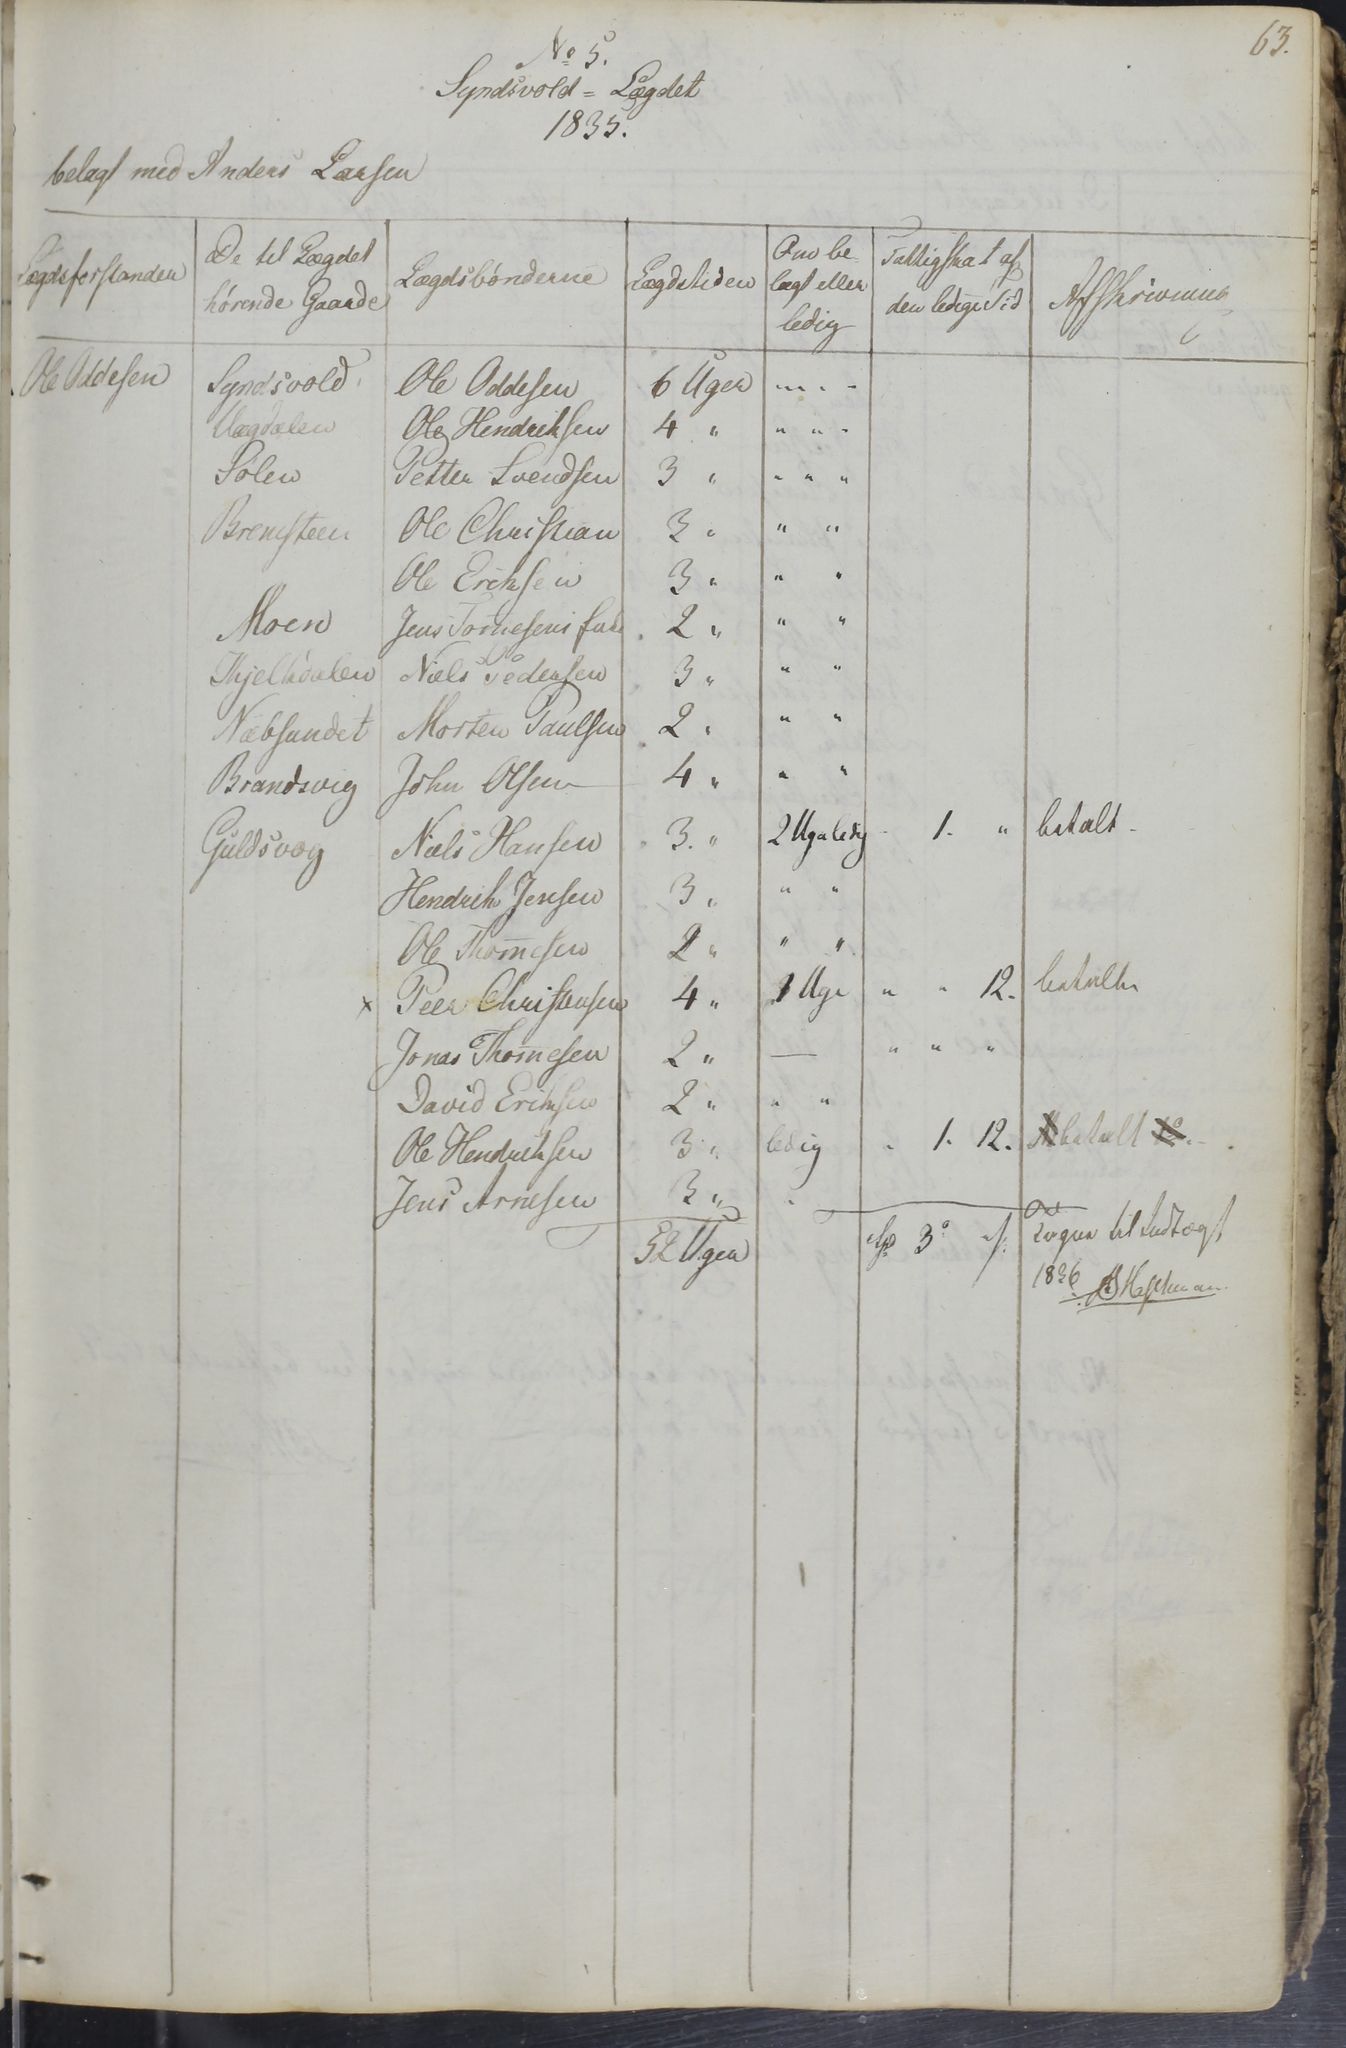 63.
No 5.
Syndsvold = Lægdet
1835.
belagt med Anders Larsen
Lægdsforstanden | De til Lægdet hørende Gaarde | Lægdsbønderne | Lægdstiden | Om belagt eller ledig | Fattigskat af den ledige Tid | Afskrivning
Ole Oddesen Syndsvold Ole Oddesen 6 Uger " " "
Ole Hendriksen 4 " " " "
Solen Petter Svendsen 3 " " " "
Bremsteen Ole Christian 3 " " "
Ole Eriksen 3 " " "
Moen Jens 2 " " "
Niels Pedersen 3 " " "
Næbsundet Morten Paulsen 2 " " "
Brandsvig John Olsen 4 " " "
Guldsvog Niels Hansen 3. " 2 Uger ledig - 1. " betalt -
Hendrik Jensen 3 " " "
Ole Thom̄esen 2 " " "
x Peer Christensen 4 " 1 Uge " " 12. betalt
Jonas Thom̄esen 2 " — " " "
David Eriksen 2 " " "
Ole Hendriksen 3 " ledig " 1. 12. betalt
Jens Arnesen 3 " "
52 Uger 3 til Indtægt
1836